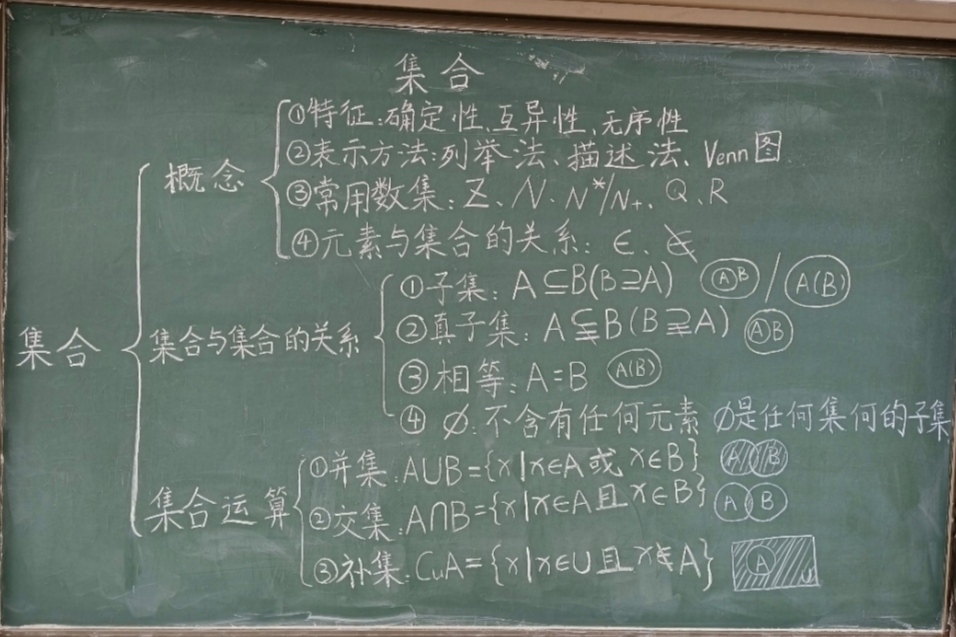 集合
①特征:确定性、互异性、无序性
概念 ②表示方法:列举法、描述法、Venn图.
③常用数集:Z、N、N*/N+、Q、R
④元素与集合的关系:∈、∉
①子集:A⊆B(B⊇A) AB / A(B)
集合 集合与集合的关系 ②真子集:A⫋B(B⫌A) AB
③相等:A=B A(B)
④ ∅:不含有任何元素 ∅是任何集何的子集
①并集:A∪B={x|x∈A或x∈B} A B
集合运算 ②交集:A∩B={x|x∈A且x∈B} A B
③补集:CuA={x|x∈U且x∉A} A U